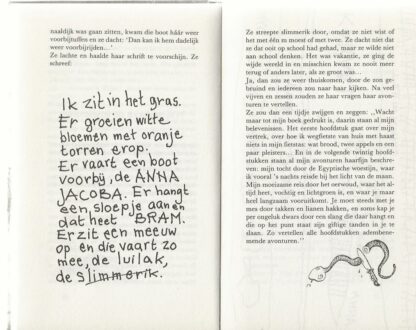 naaldijk was gaan zitten, kwam die boot háár weer
voorbijtuffen en ze dacht: 'Dan kan ik hem dadelijk
weer voorbijrijden...'
Ze lachte en haalde haar schrift te voorschijn. Ze
schreef:
Ik zit in het gras.
Er groeien witte
bloemen met oranje
torren erop.
Er vaart een boot
voorbij, de ANNA
JACOBA. Er hangt
een sloepje aan en
dat heet BRAM.
Er zit een meeuw
op en die vaart zo
mee, de luilak,
de slimmerik.
Ze streepte slimmerik door, omdat ze niet wist of
het met één m moest of met twee. Ze dacht niet dat
ze dat ooit op school had gehad, maar ze wilde niet
aan school denken. Het was vakantie, ze ging de
wijde wereld in en misschien kwam ze nooit meer
terug of anders later, als ze groot was...
Ja, dan zou ze weer thuiskomen, door de zon ge-
bruind en iedereen zou naar haar kijken. Na veel
vijven en zessen zouden ze haar vragen haar avontu-
ren te vertellen.
Ze zou dan een tijdje zwijgen en zeggen: ,,Wacht
maar tot mijn boek gedrukt is, daarin staan al mijn
belevenissen. Het eerste hoofdstuk gaat over mijn
vertrek, over hoe ik wegfietste van huis met haast
niets in mijn fietstas: wat brood, twee appels en een
paar pleisters... En in de volgende twintig hoofd-
stukken staan al mijn avonturen haarfijn beschre-
ven: mijn tocht door de Egyptische woestijn, waar
ik vooral 's nachts reisde bij het licht van de maan.
Mijn moeizame reis door het oerwoud, waar het al-
tijd heet, vochtig en lichtgroen is, en waar je maar
heel langzaam vooruitkomt. Je moet steeds met je
mes door takken en lianen hakken, en soms kap je
per ongeluk dwars door een slang die daar hangt en
die op het punt staat zijn giftige tanden in je te
slaan. Zo vertellen alle hoofdstukken adembene-
mende avonturen.''